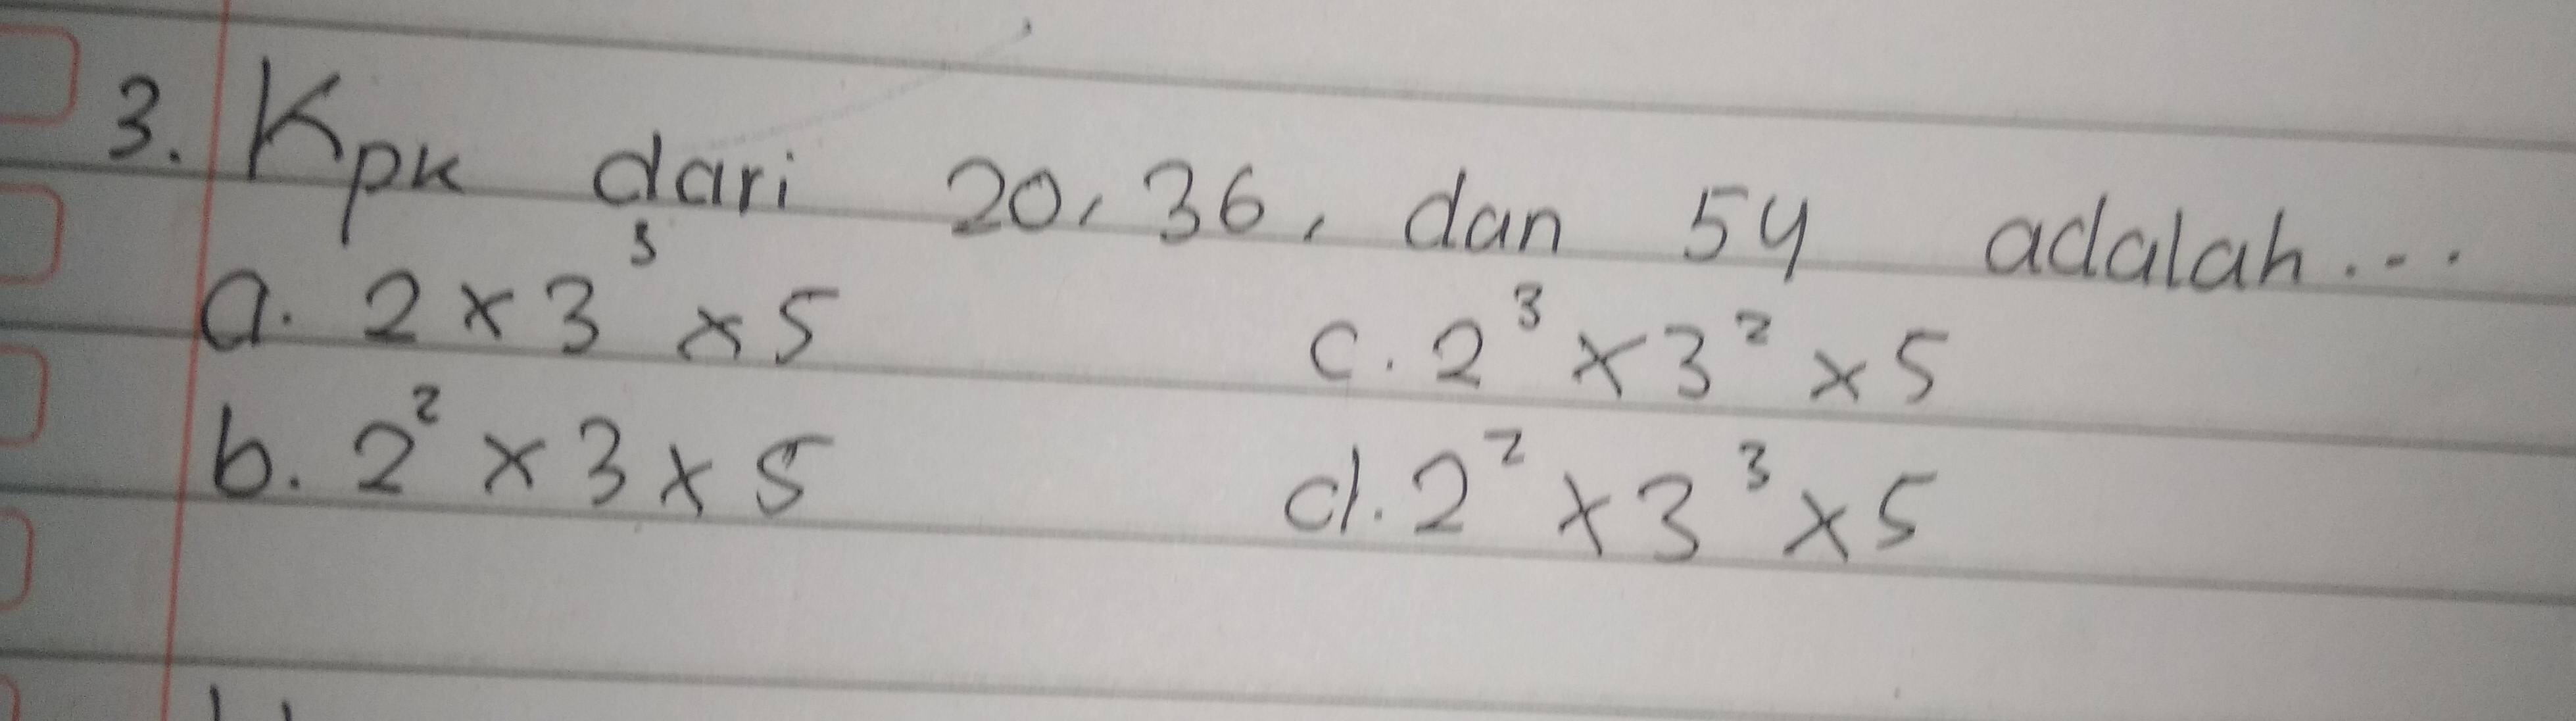 3. Kpk dari 20, 36, dan 54 adalah...
a. 2 × 3³ × 5 c. 2³ × 3² × 5
b. 2² × 3 × 5 d. 2² × 3³ × 5